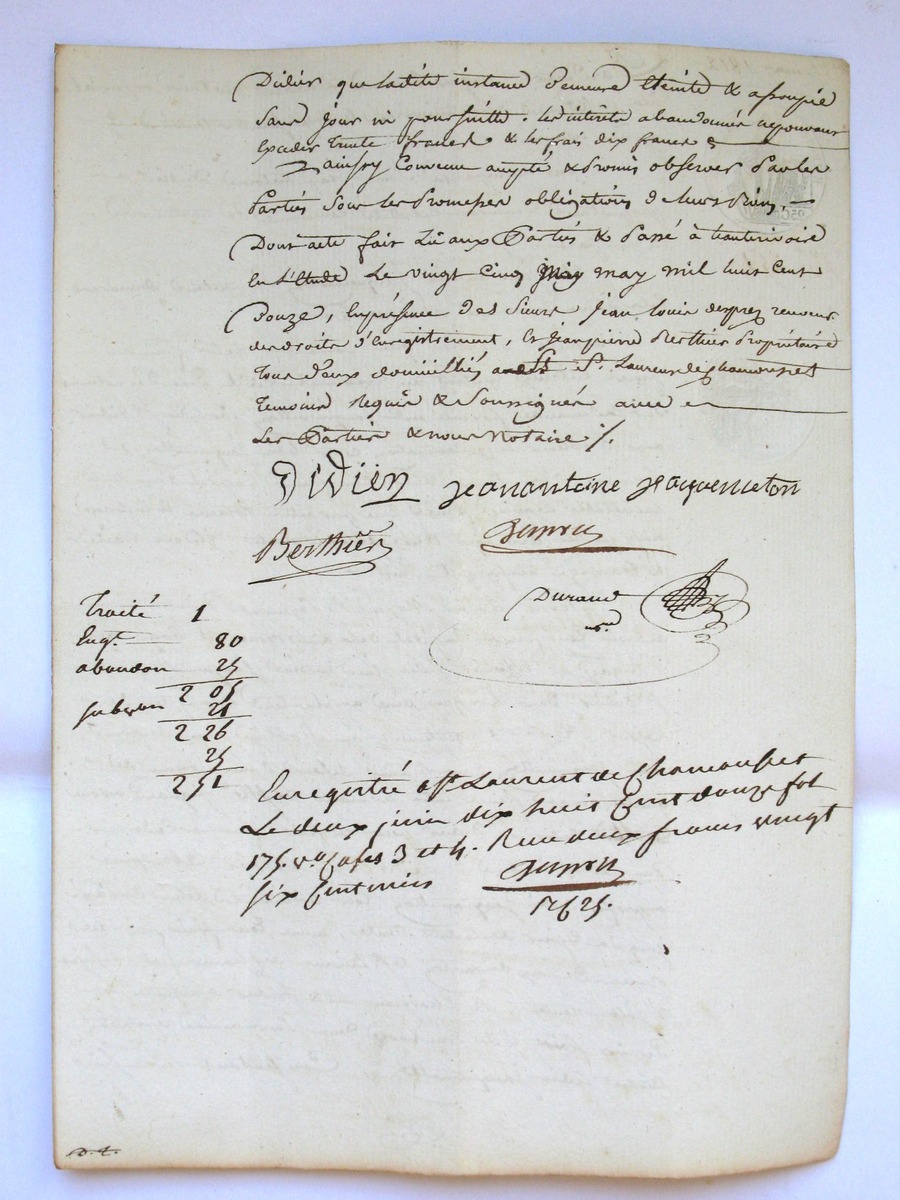 Didier que ladite instance demeure Eteinte & assoupie
Sans jour ni poursuitte. les intérêts abandonnés ne pouvant
Exceder trente francs & les frais dix francs
ainsy Convenu accepté & Promis observer Par les
Parties Sous les Promesses obligations de leurs Biens. —
Dont acte fait Lû aux Parties & Passé à hauterivoire
En l'Etude Le vingt Cinq may mil huit Cent
Douze, En présence des Sieurs Jean Louis desprez receveur
des droits d'Enregistrement, Et Jean pierre Berthier Propriétaire
Tous deux domiciliés a St. Laurent de Chamousset
Temoins Requis & Soussignés avec
Les Parties & nous Notaire /.
Didier jean antoine jacquemeton
Berthier
Durand
nre
Traité 1
Engt. 80
abandon 25
2 05
subvon 21
2 26
25
2 51
Enregistré a St. Laurent de Chamousset
Le deux juin dix huit Cent douze fol
175. vo Cases 3 et 4. Recu deux francs vingt
six Centimes
D. L.